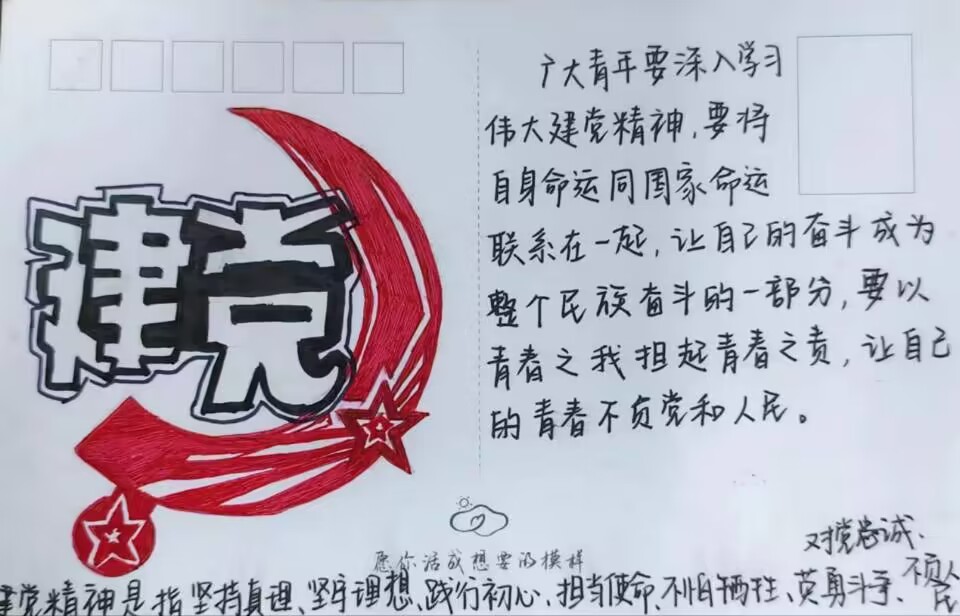 建党
广大青年要深入学习
伟大建党精神，要将
自身命运同国家命运
联系在一起，让自己的奋斗成为
整个民族奋斗的一部分，要以
青春之我担起青春之责，让自己
的青春不负党和人民。
愿你活成想要的模样
对党忠诚、
建党精神是指坚持真理、坚守理想、践行初心、担当使命、不怕牺牲、英勇斗争、不负人民